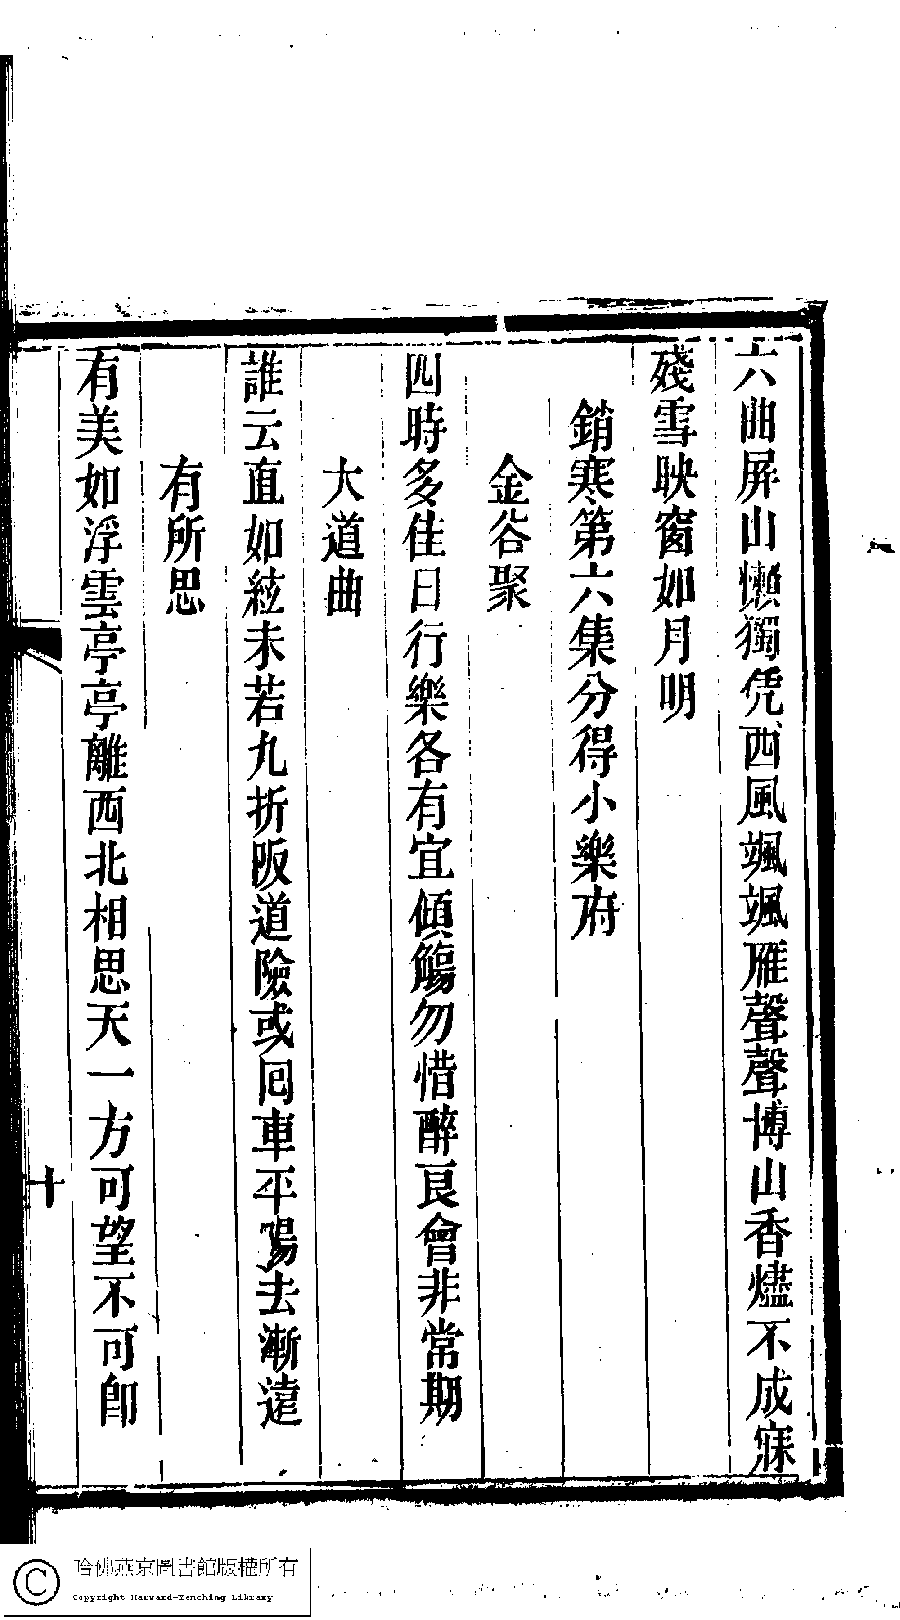 六曲屏山懶獨凭西風颯颯雁聲聲博山香燼不成寐
殘雪映窗如月明
銷寒第六集分得小樂府
金谷聚
四時多佳日行樂各有宜傾觴勿惜醉良會非常期
大道曲
誰云直如絃未若九折阪道險或回車平陽去漸遠
有所思
有美如浮雲亭亭離西北相思天一方可望不可卽
十
哈佛燕京圖書館版權所有
Copyright Harvard-Yenching Library